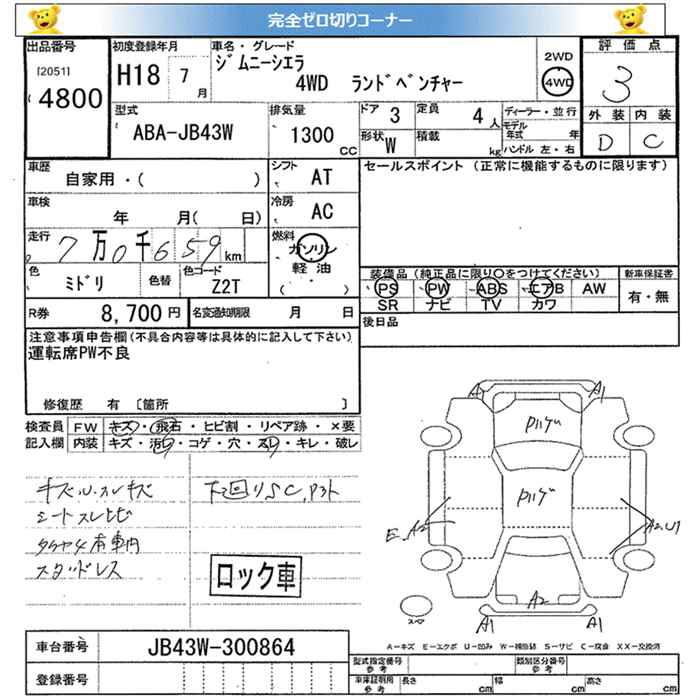 完全ゼロ切りコーナー
出品番号 [2051] 4800
初度登録年月 H18 7月
車名・グレード ジムニーシエラ 4WD ランドベンチャー
2WD 4WD
評価点 3
外装 内装
D C
型式 ABA-JB43W
排気量 1300 CC
ドア 3
定員 4人
形状 W
積載 kg
ディーラー・並行
モデル年式 年
ハンドル 左・右
車歴 自家用・( )
シフト AT
セールスポイント (正常に機能するものに限ります)
車検 年 月( 日)
冷房 AC
走行 7万0千659km
燃料 ガソリン 軽油 ( )
色 ミドリ 色替 色コード Z2T
装備品 (純正品に限り○をつけてください)
新車保証書
PS PW ABS エアB AW
SR ナビ TV カワ
有・無
R券 8,700円 名変通知期限 月 日
後日品
注意事項申告欄(不具合内容等は具体的に記入して下さい)
運転席PW不良
修復歴 有 [箇所 ]
検査員 FW キズ・飛石・ヒビ割・リペア跡・×要
記入欄 内装 キズ・汚れ・コゲ・穴・スレ・キレ・破レ
キズ・ハ・スレキズ
下回りSC,P3ト
シートスレヒビ
タイヤ4本車内
スタッドレス
ロック車
A1 A1
Pハゲ
Pハゲ
E、A2
A2、U1
A2
A1 A1
A-キズ E-エクボ U-凹み W-補修跡 S-サビ C-腐食 XX-交換済
車台番号 JB43W-300864
登録番号
型式指定番号 参考
類別区分番号 参考
車庫証明用 参考 長さ cm 幅 cm 高さ cm